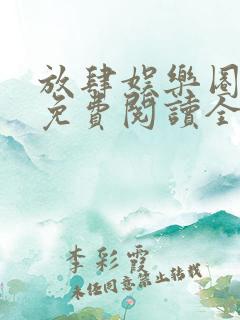 放肆娛樂圈
免費閱讀全
李彩霞
未經同意禁止轉載